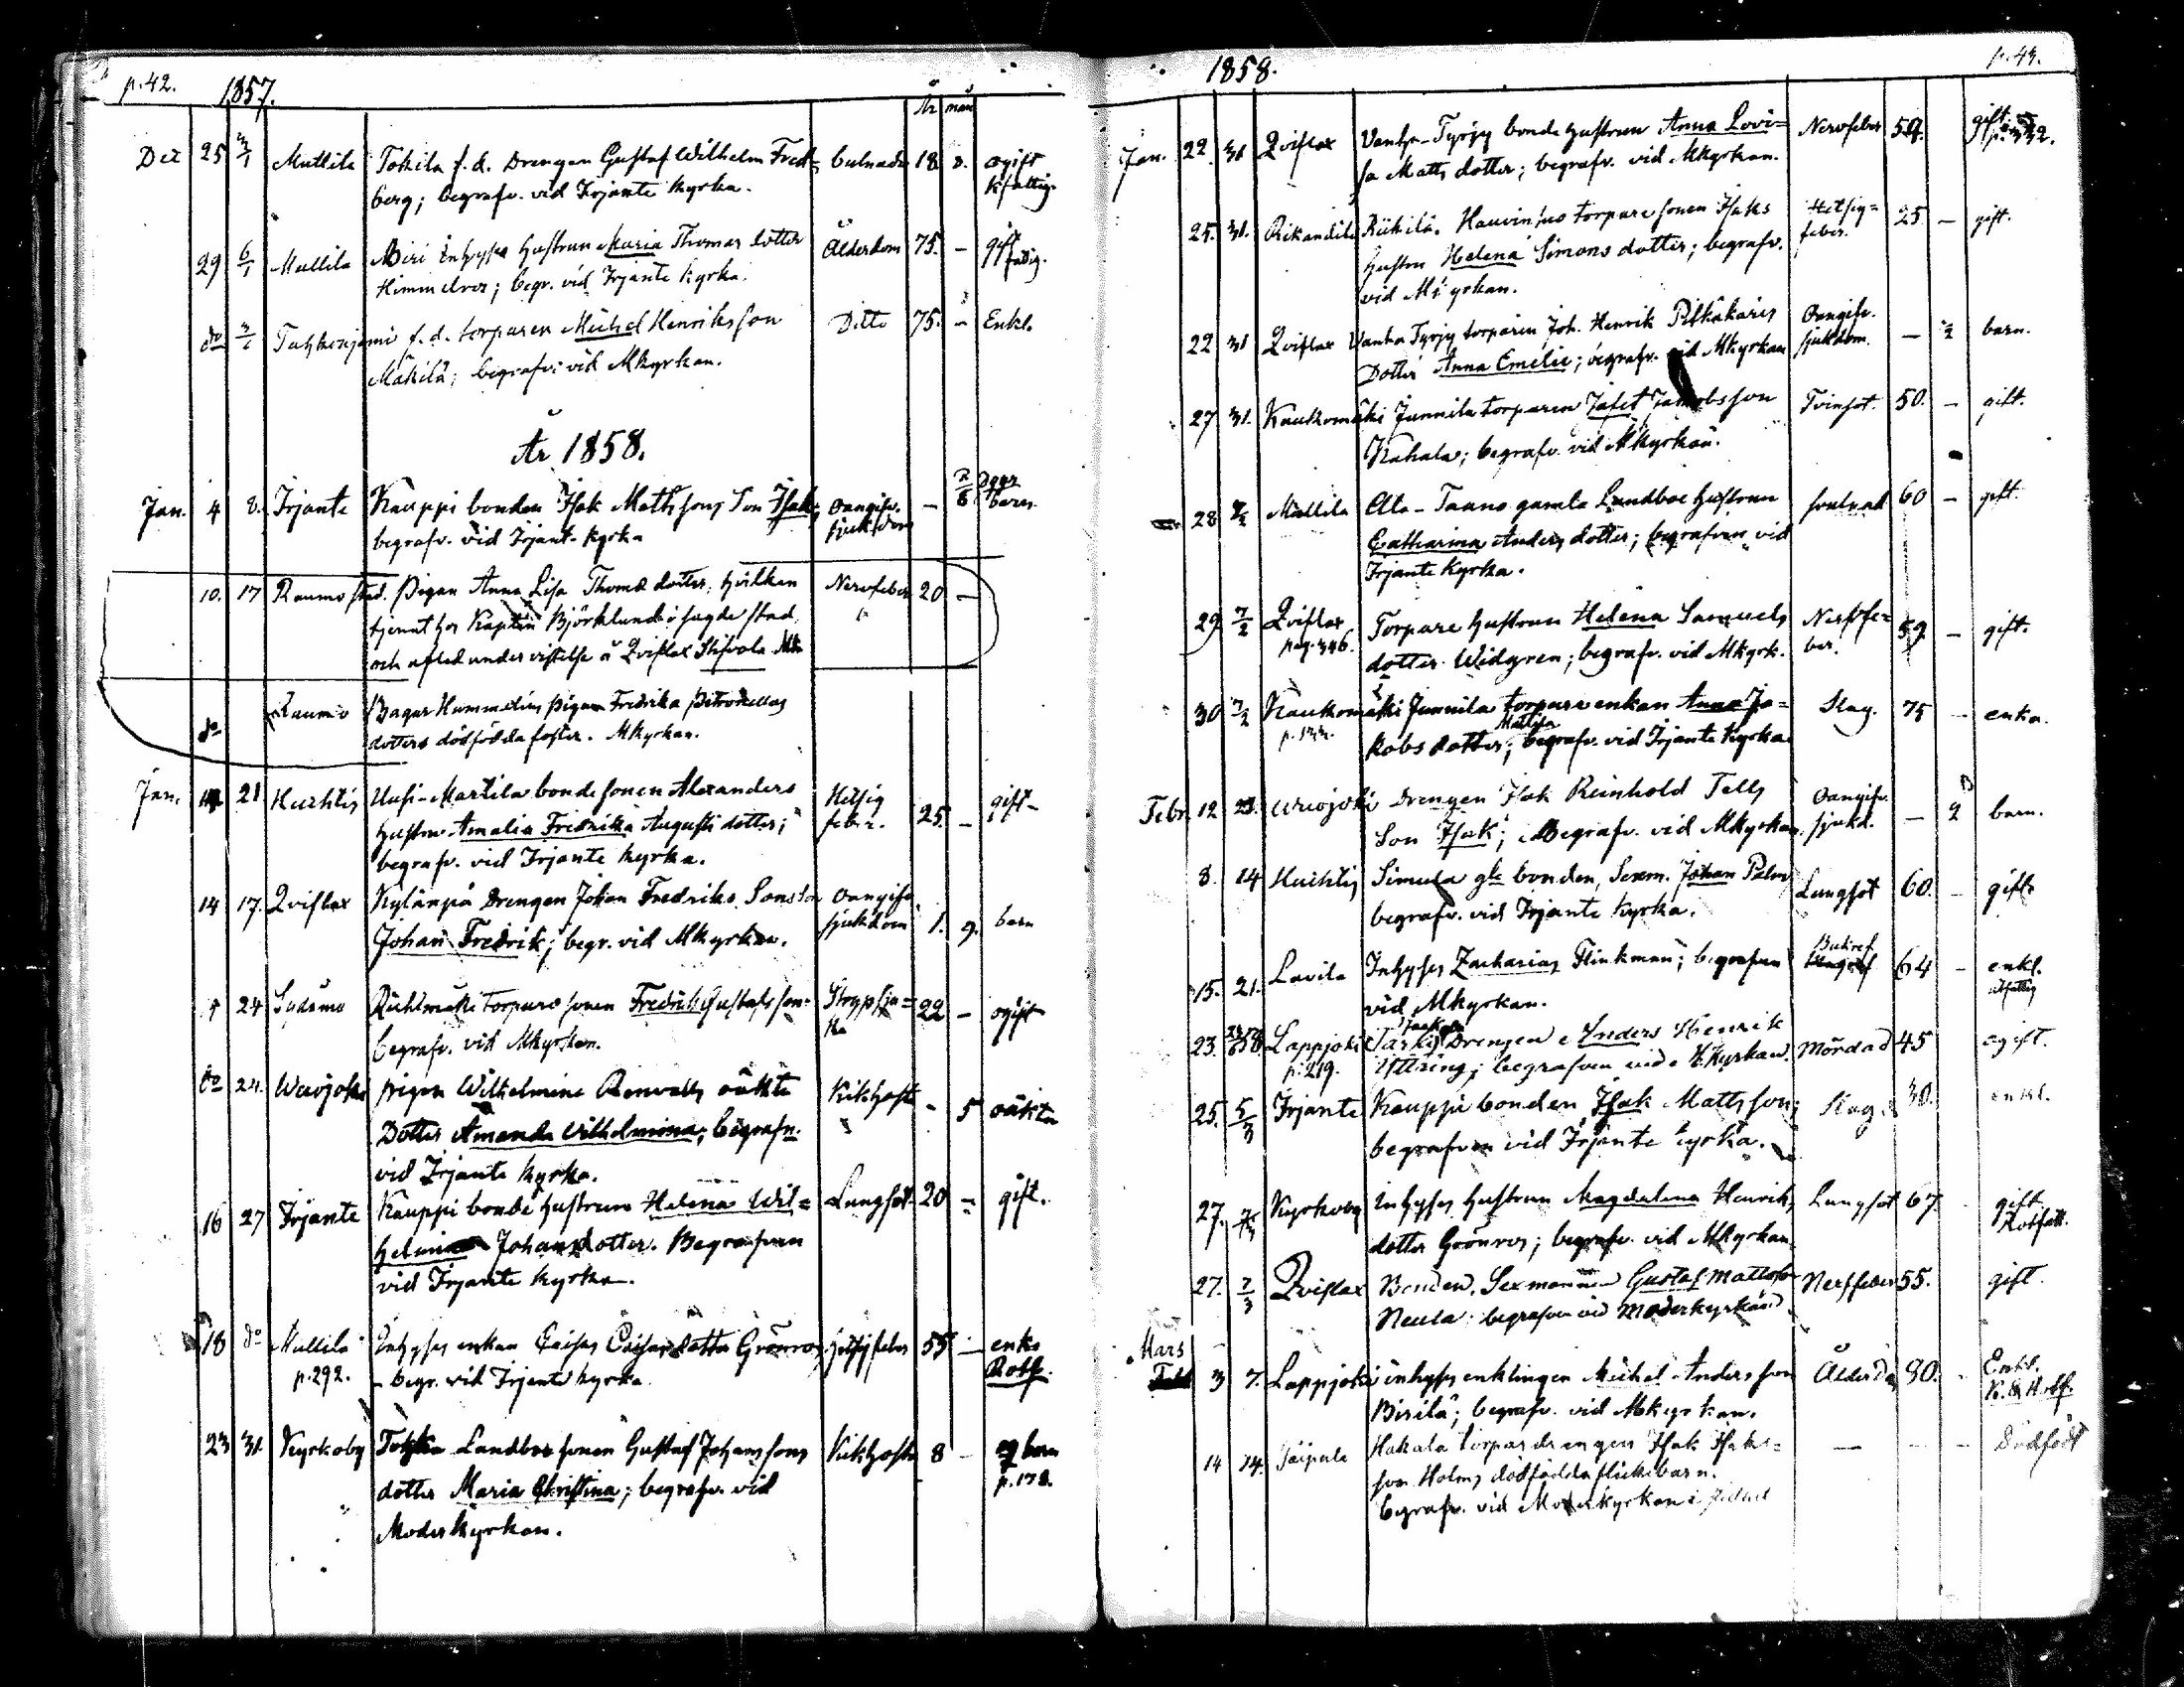 p. 42. 1857.
År mån
Dec 25 3/1 Mullila Tokila f. d. Drengen Gustaf Wilhelm Fred= bulnader 18. 8. ogift
berg; begrafv. vid Irjante Kyrka. kfattig.
29 6/1 Mullila Biri Inhyses hustrun Maria Thomas dotter Ålderdom 75. — gift
Himmelros; begr. vid Irjante Kyrka. fattig.
do 3/1 f. d. torparen Michel Henriksson Ditto 75. — Enkl.
Mäkilä; begrafv. vid Mkyrkan.
År 1858.
Jan. 4 8. Irjante Kauppi bonden Isak Mattssons Son Isak; oangifv. — dagar
begrafv. vid Irjant. Kyrka sjukdom barn.
10. 17 Raumo stad. Pigan Anna Lisa Thomæ dotter, hvilken Nervfeber 20 —
tjenat hos Kaptén Björklund i sagde stad
och afled under vistelse å Qviflax Stifvola
do Raumo Bagar Hummelins pigan Fredrika Petronellas
dotters dödfödda foster. Mkyrkan.
Jan. 14 21 Huchtis Uusi-Martila bonde sonen Alexanders Hetsig 25. — gift
hustru Amalia Fredrika Augusti dotter; feber.
begrafv. vid Irjante Kyrka.
14 17. Qviflax Kylänpä Drengen Johan Fredriks Sons son oangifv. 1. 9. barn
Johan Fredrik; begr. vid Mkyrkan. sjukdom
24 Sydämo torpare sonen Fredrik Gustafsson= Strypsju= 22 — ogift
begrafv. vid Mkyrkan. ka
do 24. Werojoki pigan Wilhelmina Renvalls oäkta Kikhosta - 5 oäkta
Dotter Amanda Wilhelmina; begrafn.
vid Irjante Kyrka.
16 27 Irjante Kauppi bonde hustrun Helena Wil= Lungsot. 20 — gift.
helmina Johans dotter. Begrafven
vid Irjante Kyrka.
18 do Mullila Inhyses enkan Caisas dotter Grönros Hetsig feber 55 — enka
p. 292. begr. vid Irjante Kyrka. Rotf.
23 31. Kyrkoby Landboe sonen Gustaf Johanssons Kikhosta 8 — barn
dotter Maria Christina; begrafv. vid p. 178.
Moderkyrkan.
1858. p. 43.
Jan. 22. 31 Qviflax Vanha-Tyrjy bonde hustrun Anna Lovi= Nervfeber 59. gift.
sa Matts dotter; begrafv. vid Mkyrkan.
25. 31. Rikandila Rickilä. Hauvinsuo torpare sonen Isaks Hetsig= 25 — gift.
hustru Helena Simons dotter; begrafv. feber.
vid Mkyrkan.
22 31 Qviflax Vanha Tyrjy torparen Joh. Henrik Pitkäkaris Oangifv. — ½ barn.
Dotter Anna Emelie; begrafv. vid Mkyrkan sjukdom.
27 31. Kaukomäki Junnila torparen Jafet Jakobsson Tvinsot. 50. — gift.
Kahala; begrafv. vid Mkyrkan.
28 7/2 Mullila Ala-Taano gamla Landboe hustrun svulnad 60 — gift.
Catharina Anders dotter; begrafven vid
Irjante Kyrka.
29 7/2 Qviflax Torpare hustrun Helena Samuels Nerffe= 59. — gift.
pag. 346. dotter Widgren; begrafv. vid Mkyrk. ber.
30 7/2 Kaukomäki Junnila torpare enkan Anna Ja= Slag. 75 — enka.
kobs dotter; begrafv. vid Irjante Kyrka
Febr. 12 21. Werojoki Drengen Isak Reinhold Tells Oangifv. — 2 barn.
Son Isak; Begrafv. vid Mkyrkan. sjukd.
8. 14 Huchtis Simula gle bonden, Sexm. Johan Palm Lungsot 60. — gift
begrafv. vid Irjante Kyrka.
15. 21. Lavila Inhyses Zacharias Flinkman; begrafven Bukref 64 — enkl.
vid Mkyrkan.
23. Lappjoki Drengen Anders Henrik Mördad 45 ogift.
p. 219. Yttring; begrafven vid Mkyrkan.
25. 5/3 Irjante Kauppi bonden Isak Mattsson; Slag. 30. enkl.
begrafven vid Irjante Kyrka.
27. 7/3 Kyrkoby Inhyses hustrun Magdalena Henriks Lungsot 67. gift
dotter Grönros; begrafv. vid Mkyrkan. Rotfatt.
27. 7/3 Qviflax Bonden, Sexmannen Gustaf Mattsson Nerffeber 55. gift
Neula; begrafven vid Moderkyrkan.
Mars
3 7. Lappjoki inhyses enklingen Michel Andersson Ålderd. 80. Enkl.
Birilä; begrafv. vid Mkyrkan.
14 14. Taipale Hakala torpar drengen Isak Isaks= — — — Dödfödt
son Holms dödfödda flickebarn.
begrafv. vid Moderkyrkan